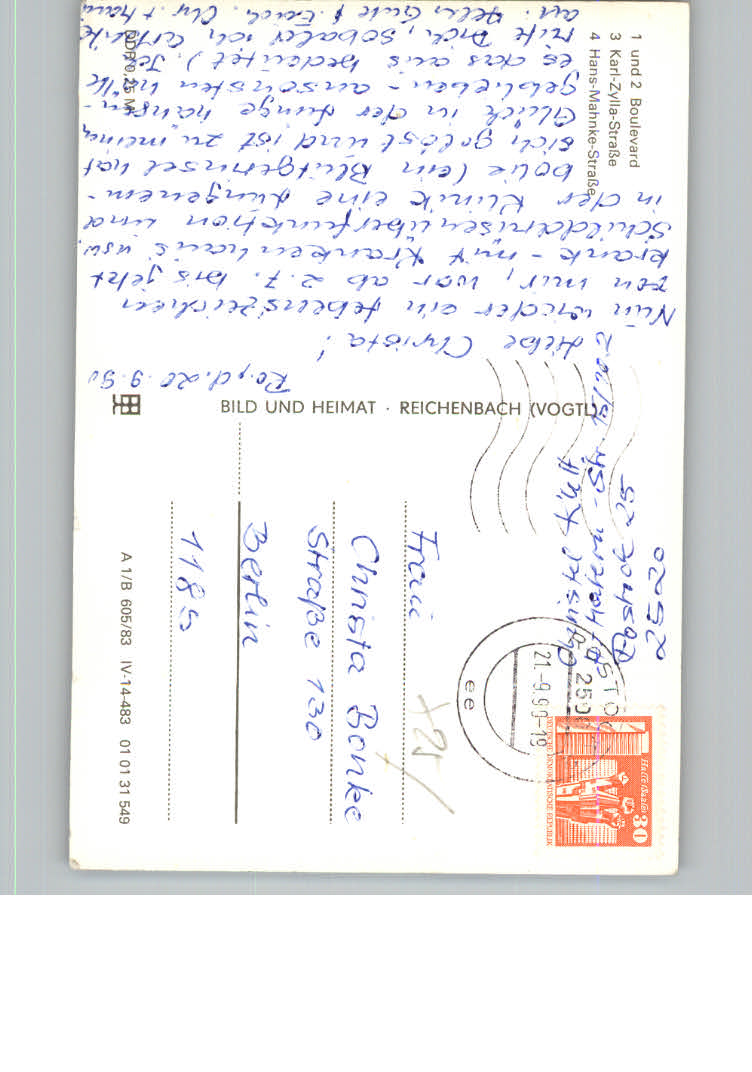 1 und 2 Boulevard
3 Karl-Zylla-Straße
4 Hans-Mahnke-Straße
Ro, d. 20.9.90
Liebe Christa!
Nun wieder ein Lebenszeichen
von mir, war ab 2.7. bis jetzt
krank - mit Krankenhaus usw.
Schilddrüsenüberfunktion und
in der Klinik eine Lungenem-
bolie (ein Blutgerinsel hat
sich gelöst und ist zu meinem
Glück in der Lunge hängen-
geblieben - ansonsten
es das aus bedeutet). Ich
rufe Dich, sobald ich
an. Alles Gute f. Euch. Chr. +
DDR 0,25 M
BILD UND HEIMAT · REICHENBACH (VOGTL)
Rostock 25
0252
ROSTOCK
2500
21.-9.90-19
ee
Halle-Neustadt
30
DEUTSCHE DEMOKRATISCHE REPUBLIK
+25
Frau
Christa Bonke
Straße 130
Berlin
1185
A 1/B 605/83 IV-14-483 01 01 31 549